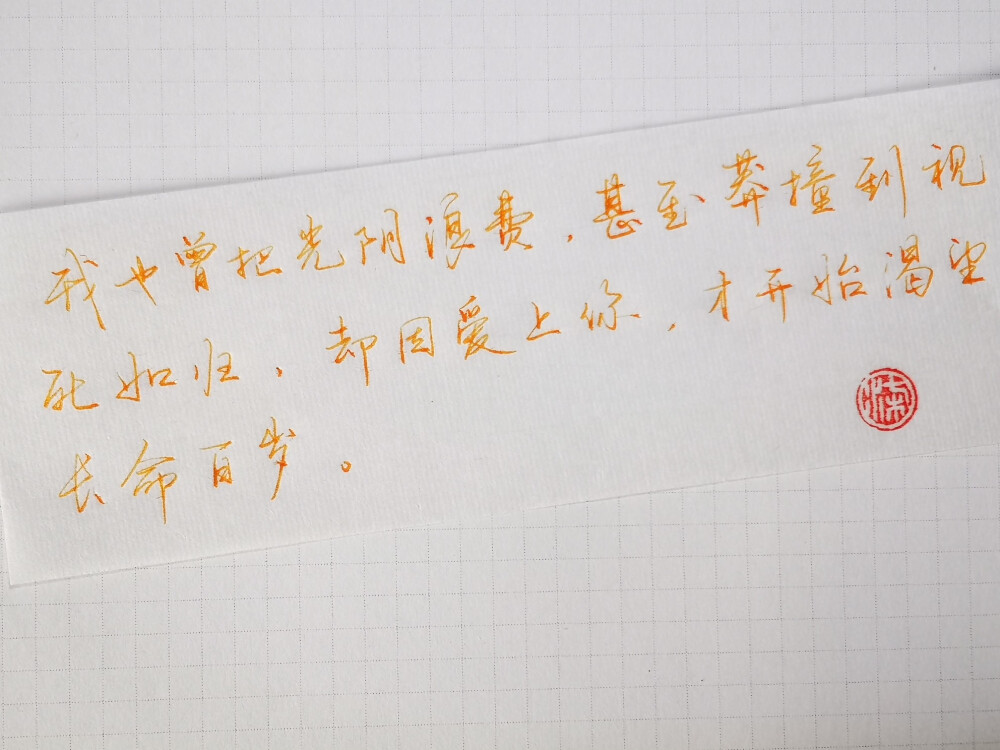 我也曾把光阴浪费，甚至莽撞到视
死如归，却因爱上你，才开始渴望
长命百岁。